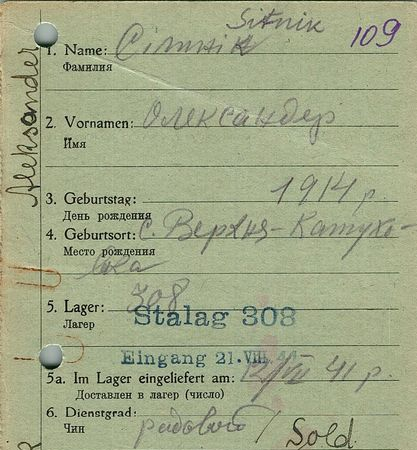 Sitnik
109
1. Name: Сітнік
Фамилия
Aleksander
2. Vornamen: Олександер
Имя
3. Geburtstag: 1914 р.
День рождения
4. Geburtsort: с. Верхня-
Место рождения
5. Lager: 308
Лагер
Stalag 308
Eingang 21. VIII. 41
5a. Im Lager eingeliefert am: 41 р.
Доставлен в лагер (число)
6. Dienstgrad:
Чин
Sold.